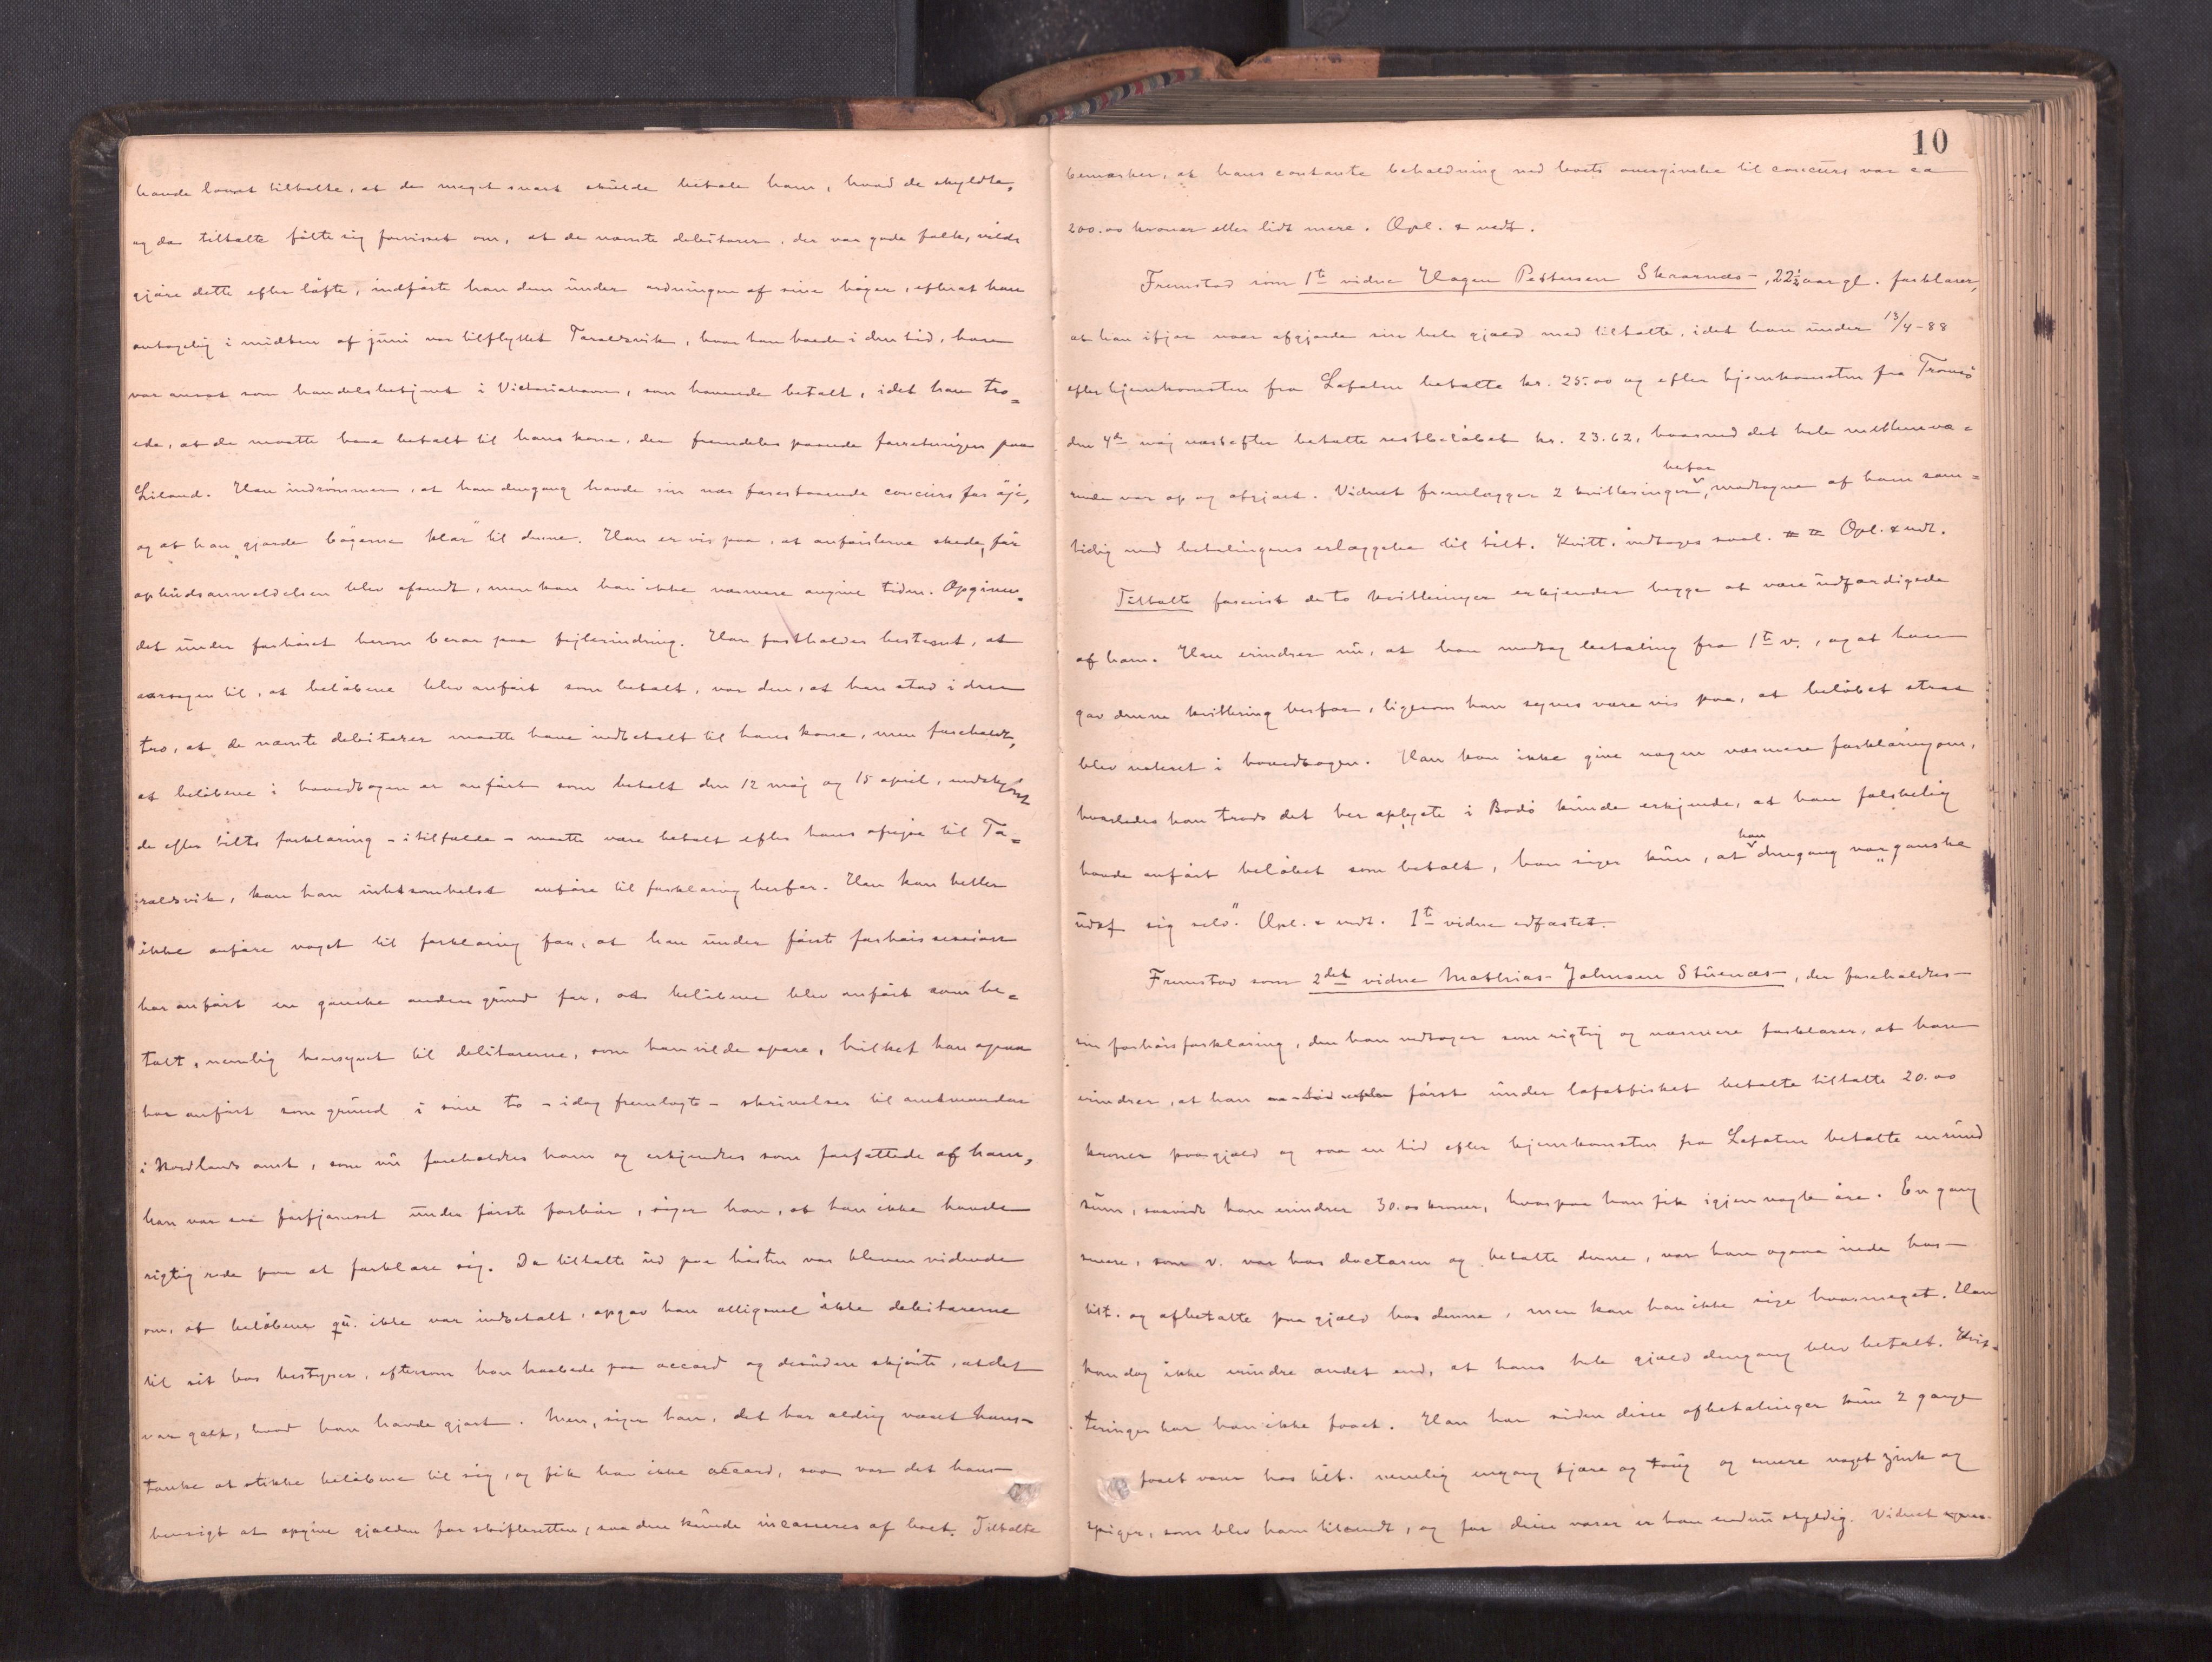 havde lovet tiltalte, at de meget snart skulde betale ham, hvad de skyldte,
og da tiltalte fölte sig forvisset om, at de nævnte debitorer, der var gode folk, vilde
gjöre dette efter löfte, indförte han dem under ordningen af sine böger, efterat han
antagelig i midten af juni var tilflyttet Taraldsvik, hvor han boede i den tid, han
var ansat som handelsbetjent i Victoriahavn, som havende betalt, idet han tro=
ede, at de maatte have betalt til hans kone, der fremdeles passede forretningen paa
Liland. Han indrömmer, at han dengang havde sin nær forestaaende concurs for öje,
og at han „gjorde bögerne klar" til denne. Han er vis paa, at anförslerne skede för
opbudsanmeldelsen blev afsendt, men kan han ikke nærmere angive tiden. Opgiven=
det under forhöret herom beror paa fejlerindring. Han fastholder bestemt, at
aarsagen til, at belöbene blev anfört som betalt, var den, at han stod i den
tro, at de nævnte debitorer maatte have indbetalt til hans kone, men foreholdt,
at belöbene i hovedbogen er anfört som betalt den 12 maj og 15 april, uudskjönt
de efter tilts forklaring - i tilfælde - maatte være betalt efter hans afrejse til Ta=
raldsvik, kan han intetsomhelst anföre til forklaring herfor. Han kan heller
ikke anföre noget til forklaring for, at han under förste forhörssession
har anfört en ganske anden grund for, at belöbene blev anfört som be=
talt, nemlig hensynet til debitorerne, som han vilde spare, hvilket han ogsaa
har anfört som grund i sine to - idag fremlagte - skrivelser til amtmanden
i Nordlands amt, som nu foreholdtes ham og erkjendtes som forfattede af ham,
han var saa forfjamset under förste forhör, siger han, at han ikke havde
rigtig rede paa at forklare sig. Da tiltalte ud paa hösten var bleven vidende
om, at belöbene qu. ikke var indbetalt, opgav han alligevel ikke debitorerne
til sit bos bestyrer, eftersom han haabede paa accord og desuden skjönte, at det
var galt, hvad han havde gjort. Men, siger han, det har aldrig været hans
tanke at stikke belöbene til sig, og fik han ikke accord, saa var det hans
hensigt at opgive gjælden for skifteretten, saa den kunde incasseres af boet. Tiltalte
10
bemærker, at hans contante beholdning ved boets overgivelse til concurs var ca
200.00 kroner eller lidt mere. Opl. & vedt.
Fremstod som 1te vidne Hagen Pettersen Skraanæs, 22½ aar gl. forklarer,
at han ifjor vaar afgjorde sin hele gjæld med tiltalte, idet han under 13/4-88
efter hjemkomsten fra Lofoten betalte kr. 25.00 og efter hjemkomsten fra Tromsö
den 4de maj næstefter betalte restbelöbet kr. 23.62, hvormed det hele mellemvæ=
rende var op og afgjort. Vidnet fremlægger 2 kvitteringer herfor, modtagne af ham sam=
tidig med betalingens erlæggelse til tilt. Kvitt. vedtoges saal. Opl. & vedt.
Tiltalte forevist de to kvitteringer erkjender begge at være udfærdigede
af ham. Han erindrer nu, at han modtog betaling fra 1te v., og at han
gav denne kvittering herfor, ligesom han synes være vis paa, at belöbet strax
blev noteret i hovedbogen. Han kan ikke give nogen nærmere forklaring om,
hvorledes han trods det her oplyste i Bodö kunde erkjende, at han falskelig
havde anfört belöbet som betalt, han siger kun, at han dengang var „ganske
udaf sig selv". Opl. & vedt. 1te vidne edfæstet.
Fremstod som 2det vidne Mathias Johnsen Stuenæs, der foreholdtes
sin forhörsforklaring, den han vedtager som rigtig og nærmere forklarer, at han
erindrer, at han först under lofotfisket betalte tiltalte 20.00
kroner paa gjæld og saa en tid efter hjemkomsten fra Lofoten betalte en rund
sum, saavidt han erindrer 30.00 kroner, hvorpaa han fik igjen nogle öre. En gang
senere, som v. var hos doctoren og betalte denne, var han ogsaa inde hos
tilt. og afbetalte paa gjæld hos denne, men kan han ikke sige hvormeget. Han
kan dog ikke erindre andet end, at hans hele gjæld dengang blev betalt. Kvit=
teringer har han ikke faaet. Han har siden disse afbetalinger kun 2 gange
faaet varer hos tilt. nemlig engang tjære og toug og senere noget zink og
spiger, som blev ham tilsendt, og for disse varer er han endnu skyldig. Vidnet